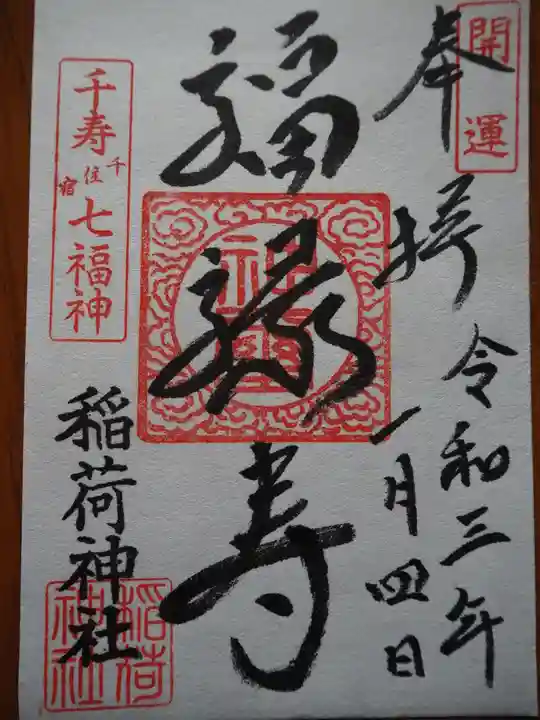 開運
奉拝
令和三年
一月四日
福禄寿
千寿七福神
千住宿
稲荷神社
稲荷神社